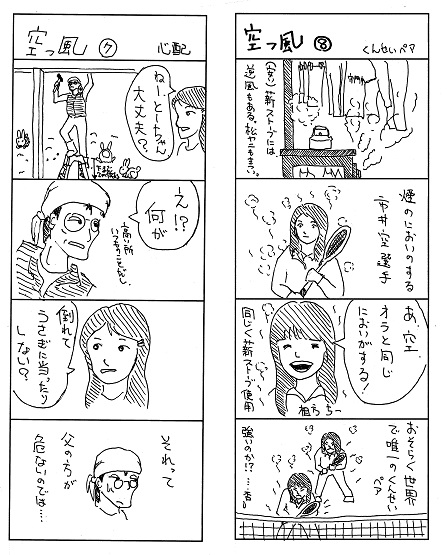 空っ風 ⑦ 心配
ねーとーちゃん
大丈夫?
え!?
何が
高い所
いつものことだし
倒れて
うさぎに当ったり
しない?
それって
父の方が
危ないのでは…
空っ風 ⑧ くんせいペア
(安い)薪ストーブには、
逆風もある。松ヤニも
煙のにおいのする
市井空選手
あ、空
オラと同じ
においがする!
同じく薪ストーブ使用
ちー
おそらく世界
で唯一のくんせい
ペア
強いのか!?…